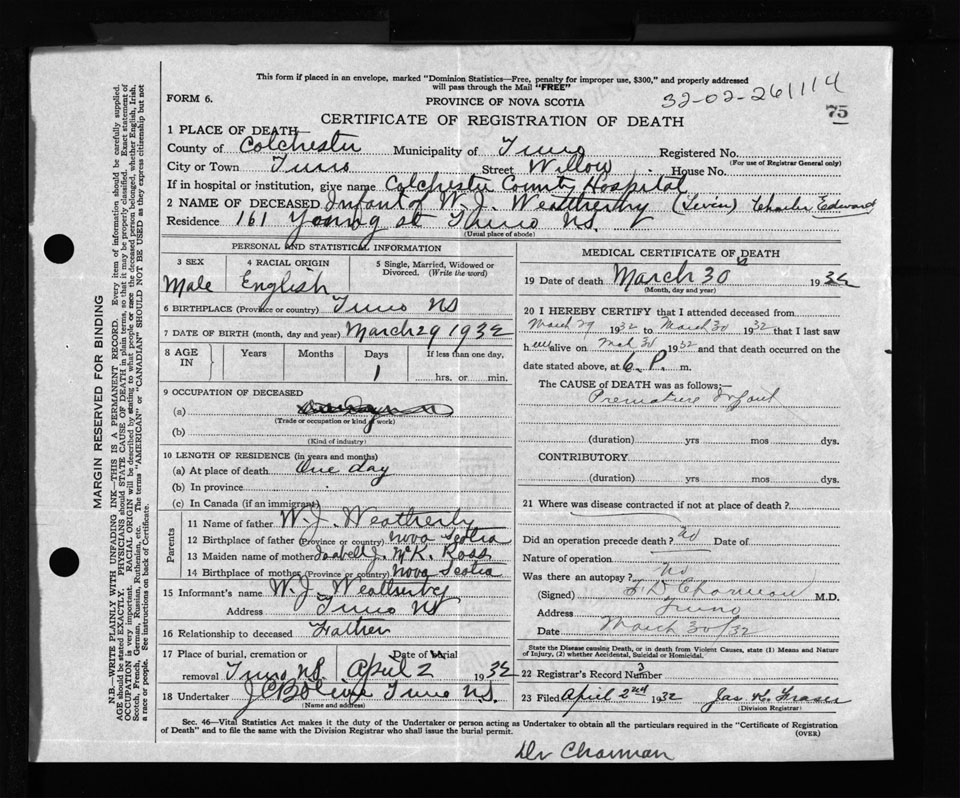 This form if placed in an envelope, marked "Dominion Statistics—Free, penalty for improper use, $300," and properly addressed
will pass through the Mail "FREE"
FORM 6.
PROVINCE OF NOVA SCOTIA
32-02-261114
75
CERTIFICATE OF REGISTRATION OF DEATH
1 PLACE OF DEATH—
County of Colchester Municipality of Truro Registered No.
(For use of Registrar General only)
City or Town Truro Street Willow House No.
If in hospital or institution, give name Colchester County Hospital
2 NAME OF DECEASED Infant of W. J. Weatherby (Twin) Charles Edward
Residence 161 Young st Truro NS.
(Usual place of abode)
PERSONAL AND STATISTICAL INFORMATION
3 SEX 4 RACIAL ORIGIN 5 Single, Married, Widowed or Divorced. (Write the word)
Male English
6 BIRTHPLACE (Province or country) Truro NS
7 DATE OF BIRTH (month, day and year) March 29 1932
8 AGE IN Years Months Days If less than one day,
1 hrs. or min.
9 OCCUPATION OF DECEASED
(a)
(Trade or occupation or kind of work)
(b)
(Kind of industry)
10 LENGTH OF RESIDENCE (in years and months)
(a) At place of death One day
(b) In province
(c) In Canada (if an immigrant)
Parents
11 Name of father W. J. Weatherby
12 Birthplace of father (Province or country) Nova Scotia
13 Maiden name of mother Isabell J. McK. Ross
14 Birthplace of mother (Province or country) Nova Scotia
15 Informant's name W. J. Weatherby
Address Truro NS
16 Relationship to deceased Father
17 Place of burial, cremation or removal Date of burial
Truro NS. April 2 1932
18 Undertaker J C B Olive Truro NS.
(Name and address)
MEDICAL CERTIFICATE OF DEATH
19 Date of death March 30 1932
(Month, day and year)
20 I HEREBY CERTIFY that I attended deceased from
March 29 1932 to March 30 1932 that I last saw
h im alive on Mch 30 1932 and that death occurred on the
date stated above, at 6. P. m.
The CAUSE OF DEATH was as follows:—
Premature Infant
(duration) yrs mos dys.
CONTRIBUTORY
(duration) yrs mos dys.
21 Where was disease contracted if not at place of death?
Did an operation precede death? No Date of
Nature of operation
Was there an autopsy? No
(Signed) Charman M.D.
Address Truro
Date March 30/32
State the Disease Causing Death, or in death from Violent Causes, state (1) Means and Nature of Injury, (2) whether Accidental, Suicidal or Homicidal.
22 Registrar's Record Number 3
23 Filed April 2nd 1932 Jas. H. Fraser
(Division Registrar)
Sec. 46—Vital Statistics Act makes it the duty of the Undertaker or person acting as Undertaker to obtain all the particulars required in the "Certificate of Registration
of Death" and to file the same with the Division Registrar who shall issue the burial permit.
(OVER)
Dr Charman
MARGIN RESERVED FOR BINDING
N.B.—WRITE PLAINLY WITH UNFADING INK—THIS IS A PERMANENT RECORD. Every item of information should be carefully supplied.
AGE should be stated EXACTLY. PHYSICIANS should STATE CAUSE OF DEATH in plain terms, so that it may be properly classified. Exact statement of
OCCUPATION is very important. RACIAL ORIGIN will be described by stating to what people or race the deceased person belonged, whether English, Irish,
Scotch, French, German, Russian, Ruthenian, etc. The terms "AMERICAN" or "CANADIAN" SHOULD NOT BE USED as they express citizenship but not
a race or people. See instructions on back of Certificate.